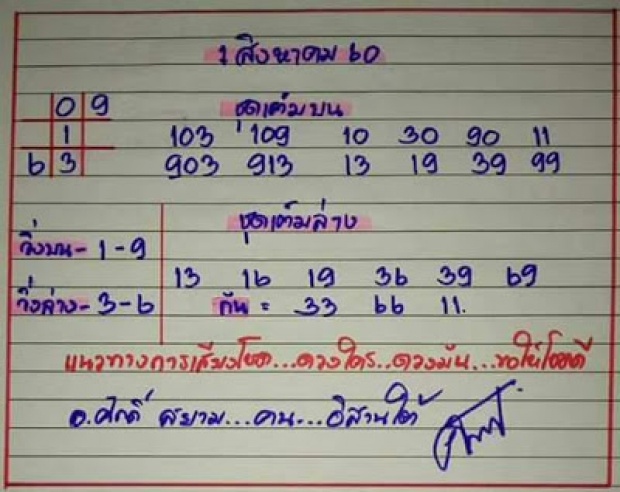 1 สิงหาคม 60
0 9
ชุดเต็มบน
1
103 109 10 30 90 11
6 3
903 913 13 19 39 99
ชุดเต็มล่าง
วิ่งบน - 1 - 9
13 16 19 36 39 69
วิ่งล่าง - 3 - 6
กัน = 33 66 11.
แนวทางการเสี่ยงโชค...ดวงใคร..ดวงมัน...ขอให้โชคดี
อ.ศักดิ์ สยาม...คน...อีสานใต้